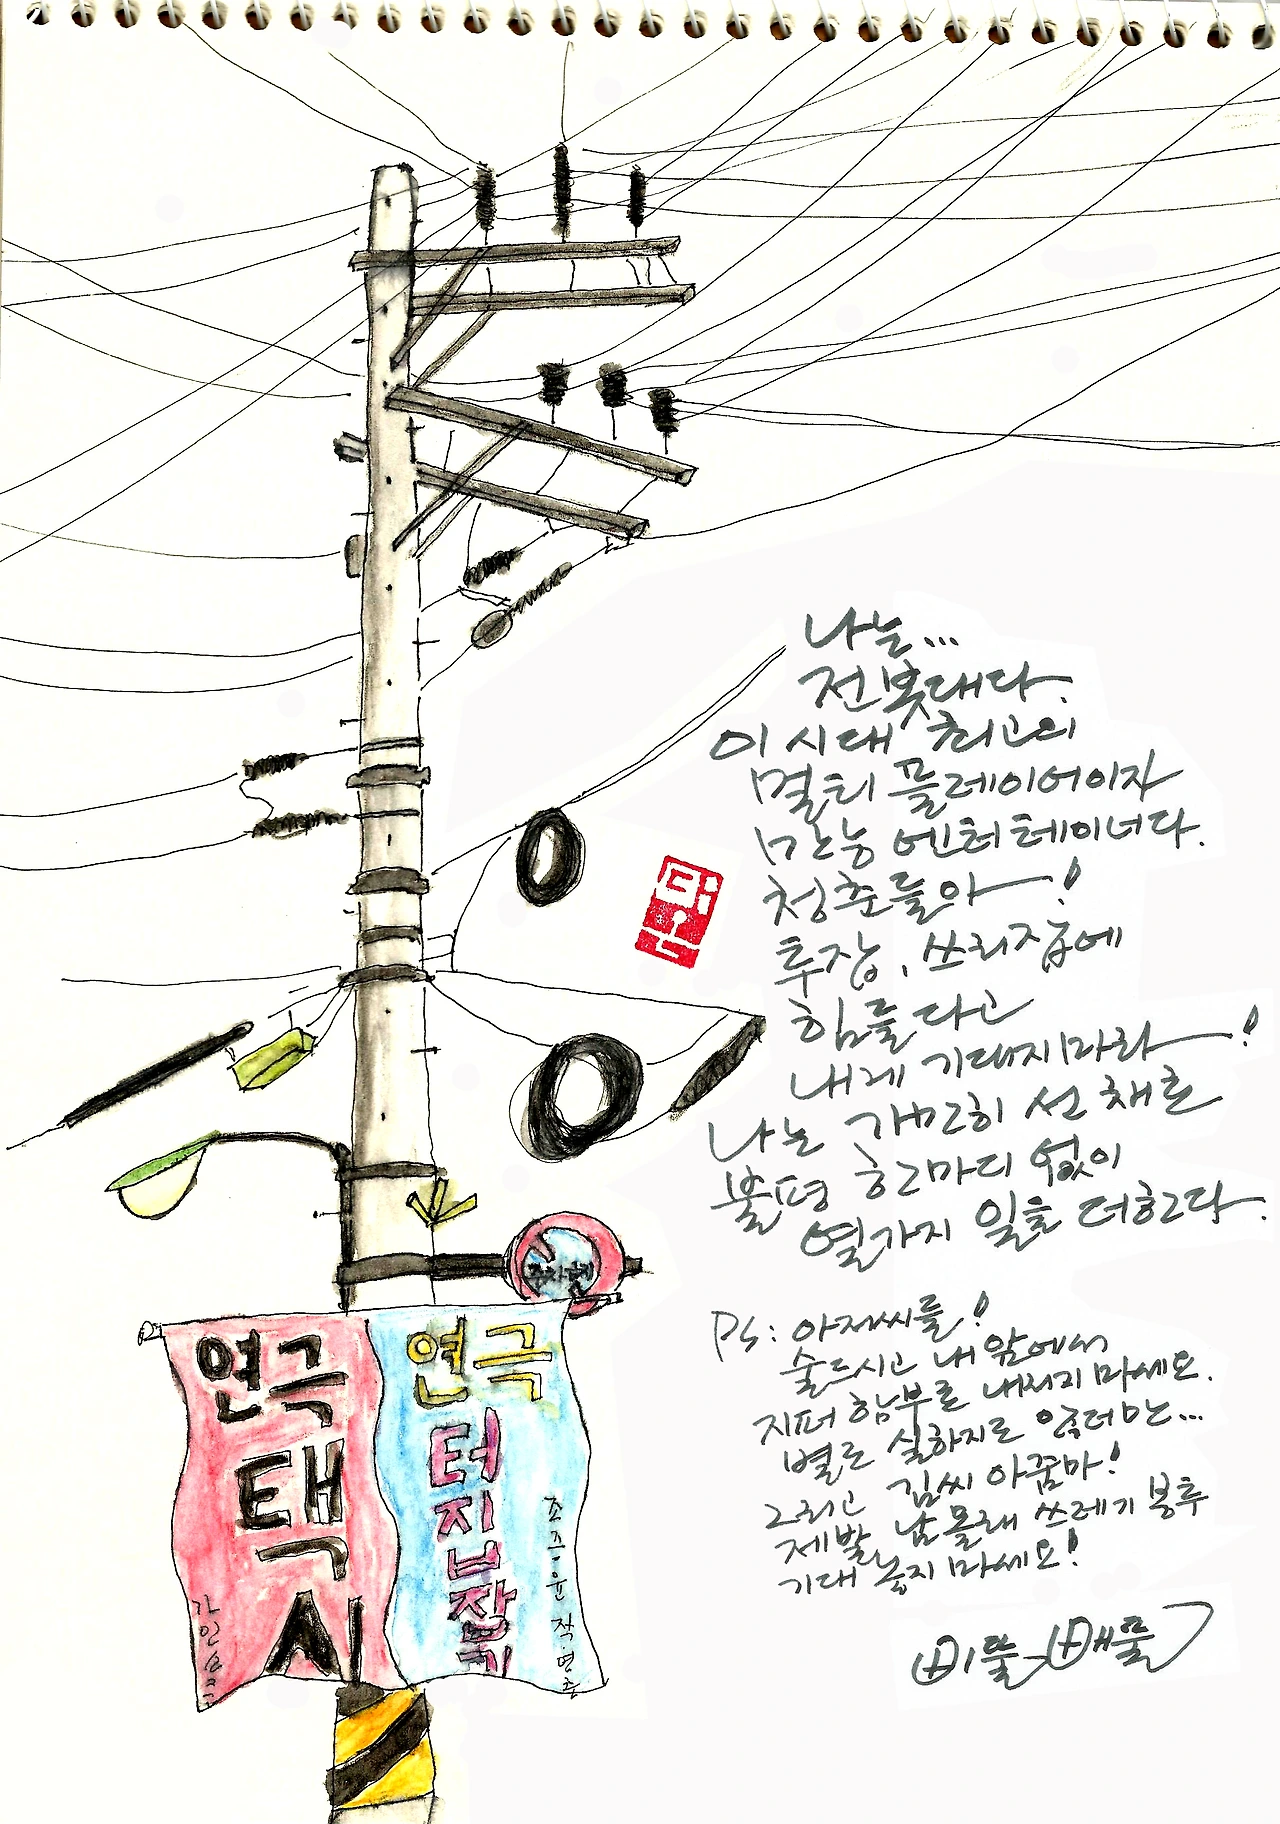 나는...
전봇대다.
이 시대 최고의
멀티 플레이어이자
만능 엔터테이너다.
청춘들아~!
투잡, 쓰리잡에
힘들다고
내게 기대지마라~!
나는 가만히 선 채로
불평 한마디 없이
열가지 일을 더한다.
PS: 아저씨들!
술드시고 내 앞에서
지퍼 함부로 내리지 마세요.
별로 실하지도 않더만...
그리고 김씨 아줌마!
제발 남 몰래 쓰레기 봉투
기대 놓지 마세요!
주차금지
연극
택시
연극
터지부잡기
조·주·윤 작·연출